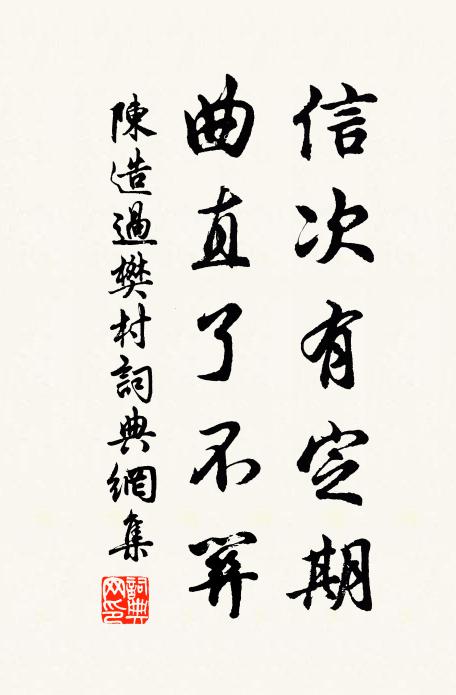 信次有定期
曲直了不
陳造過樊村詞典網集
詞典
网印